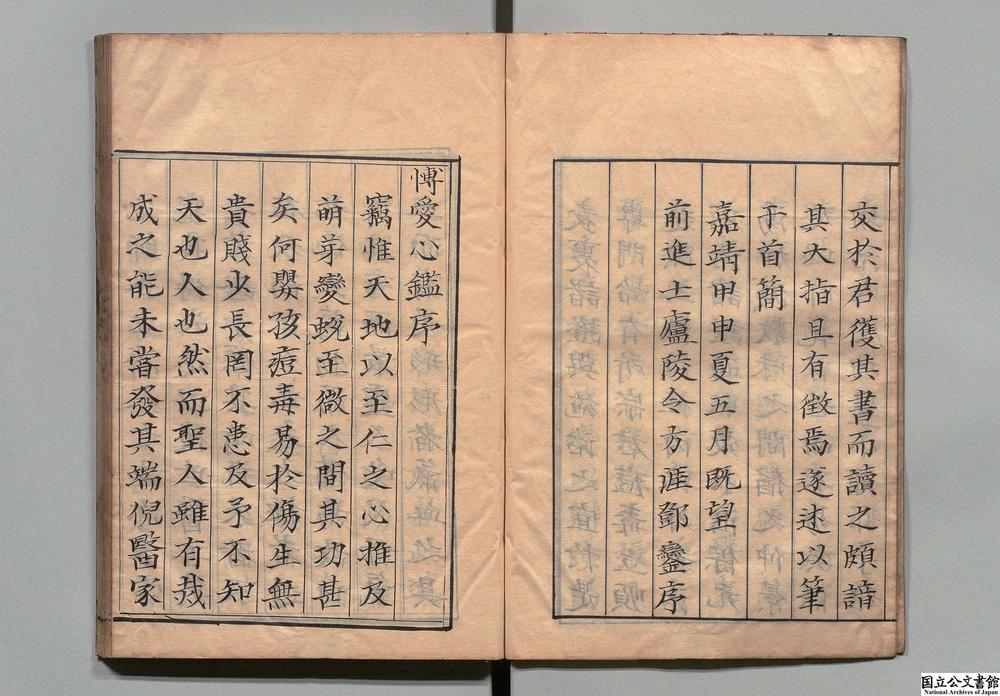 交於君獲其書而讀之頗諳
其大指且有徵焉遂述以筆
于首簡
嘉靖甲申夏五月既望
前進士廬陵令方涯鄧鑾序
博愛心鑑序
竊惟天地以至仁之心推及
萌芽變蛻至微之間其功甚
矣何嬰孩痘毒易於傷生無
貴賤少長罔不患及予不知
天也人也然而聖人雖有哉
成之能未嘗發其端倪醫家
国立公文書館
National Archives of Japan